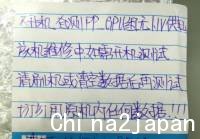 不开机 在测PP CPU电无1.1V供电
该机维修中如需开机测试
请刷机或清空数据后再测试
切勿可原机内任何数据!!!
Chi na2japan